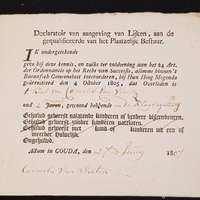 Declaratoir van aangeving van Lijken, aan de
gequalificeerde van het Plaatzelijk Bestuur.
IK ondergetekende
geve bij deze kennis, en zulks ter voldoening aan het 24. Art.
der Ordonnantie op het Recht van successie, alomme binnen 't
Bataafsch Gemeenebest intevoorderen, bij Hun Hoog Mogende
gearresteerd den 4 October 1805, dat is Overleden
Kind van Cornelis Van
oud 2 Jaaren, gewoond hebbende in de
Gehuwd gewoest nalatende kinderen of verdere afstammelingen.
Gehuwd geweest zonder kinderen natelaten.
Gehuwd geweest met kind of kinderen uit een of
meerder Huwelijken
Ongehuwd.
Actum in GOUDA, den 27 Juny 1807
Cornelis Van